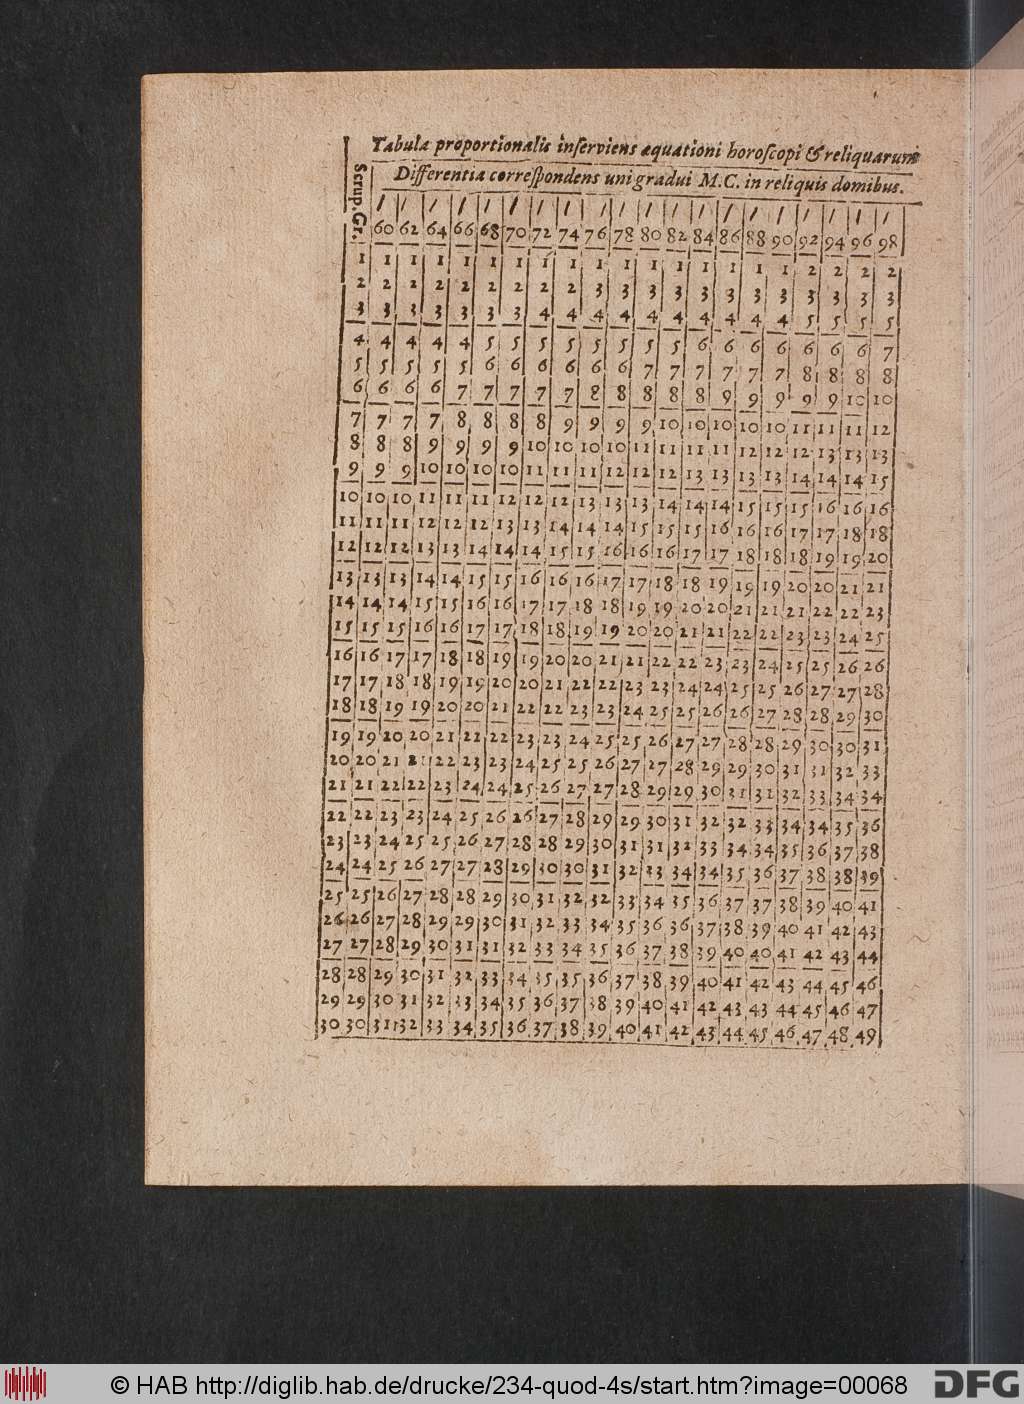 Tabula proportionalis inſerviens æquationi horoſcopi & reliquarum
Differentia correſpondens uni gradui M.C. in reliquis domibus.
Scrup. Gr.
/ / / / / / / / / / / / / / / / / / / /
60 62 64 66 68 70 72 74 76 78 80 82 84 86 88 90 92 94 96 98
1 1 1 1 1 1 1 1 1 1 1 1 1 1 1 1 1 2 2 2 2
2 2 2 2 2 2 2 2 2 3 3 3 3 3 3 3 3 3 3 3 3
3 3 3 3 3 3 3 4 4 4 4 4 4 4 4 4 4 5 5 5 5
4 4 4 4 4 5 5 5 5 5 5 5 5 6 6 6 6 6 6 6 7
5 5 5 5 5 6 6 6 6 6 6 7 7 7 7 7 7 8 8 8 8
6 6 6 6 7 7 7 7 7 8 8 8 8 8 9 9 9 9 9 10 10
7 7 7 7 8 8 8 8 9 9 9 9 10 10 10 10 10 11 11 11 12
8 8 8 9 9 9 9 10 10 10 10 11 11 11 11 12 12 12 13 13 13
9 9 9 10 10 10 10 11 11 11 12 12 12 13 13 13 13 14 14 14 15
10 10 10 11 11 11 12 12 12 13 13 13 14 14 14 15 15 15 16 16 16
11 11 11 12 12 12 13 13 14 14 14 15 15 15 16 16 16 17 17 18 18
12 12 12 13 13 14 14 14 15 15 16 16 16 17 17 18 18 18 19 19 20
13 13 13 14 14 15 15 16 16 16 17 17 18 18 19 19 19 20 20 21 21
14 14 14 15 15 16 16 17 17 18 18 19 19 20 20 21 21 21 22 22 23
15 15 15 16 16 17 17 18 18 19 19 20 20 21 21 22 22 23 23 24 25
16 16 17 17 18 18 19 19 20 20 21 21 22 22 23 23 24 25 25 26 26
17 17 18 18 19 19 20 20 21 22 22 23 23 24 24 25 25 26 27 27 28
18 18 19 19 20 20 21 22 22 23 23 24 25 25 26 26 27 28 28 29 30
19 19 20 20 21 22 22 23 23 24 25 25 26 27 27 28 28 29 30 30 31
20 20 21 21 22 23 23 24 25 25 26 27 27 28 29 29 30 31 31 32 33
21 21 22 22 23 24 24 25 26 27 27 28 29 29 30 31 31 32 33 34 34
22 22 23 23 24 25 26 26 27 28 29 29 30 31 32 32 33 34 34 35 36
23 23 24 25 25 26 27 28 28 29 30 31 31 32 33 34 34 35 36 37 38
24 24 25 26 27 27 28 29 30 30 31 32 33 34 34 35 36 37 38 38 39
25 25 26 27 28 28 29 30 31 32 32 33 34 35 36 37 37 38 39 40 41
26 26 27 28 29 29 30 31 32 33 34 35 36 36 37 38 39 40 41 42 43
27 27 28 29 30 31 31 32 33 34 35 36 37 38 39 40 40 41 42 43 44
28 28 29 30 31 32 33 34 35 35 36 37 38 39 40 41 42 43 44 45 46
29 29 30 31 32 33 34 35 36 37 38 39 40 41 42 43 43 44 45 46 47
30 30 31 32 33 34 35 36 37 38 39 40 41 42 43 44 45 46 47 48 49
© HAB http://diglib.hab.de/drucke/234-quod-4s/start.htm?image=00068
DFG